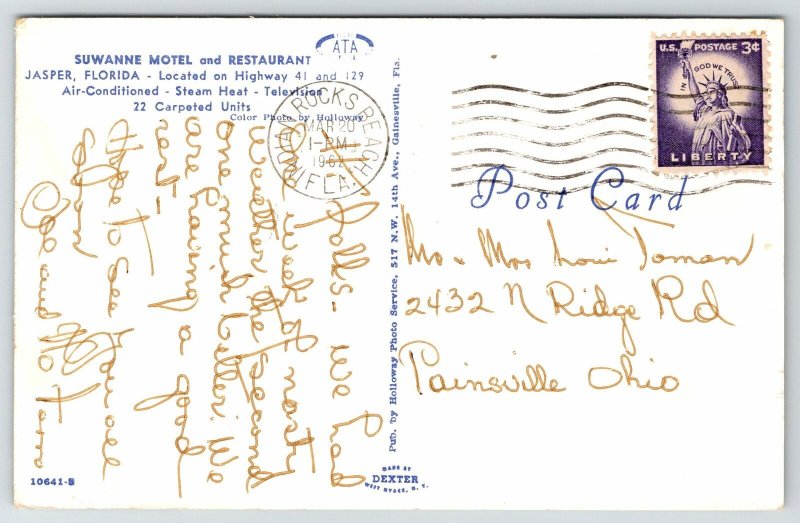 SUWANNE MOTEL and RESTAURANT
JASPER, FLORIDA - Located on Highway 41 and 129
Air-Conditioned - Steam Heat - Television
22 Carpeted Units
Color Photo by Holloway
ATA
INDIAN ROCKS BEACH
MAR 20
1-PM
1962
FLA.
U.S. POSTAGE 3¢
IN GOD WE TRUST
LIBERTY
Post Card
Hi folks - we had
a week of nasty
weather the second
one much better. We
are having a good
rest -
Hope to see you all
soon
Mr & Mrs Louie Toman
2432 N Ridge Rd
Painsville Ohio
Pub. by Holloway Photo Service, 517 N.W. 14th Ave., Gainesville, Fla.
10641-B
MADE BY
DEXTER
WEST NYACK, N. Y.